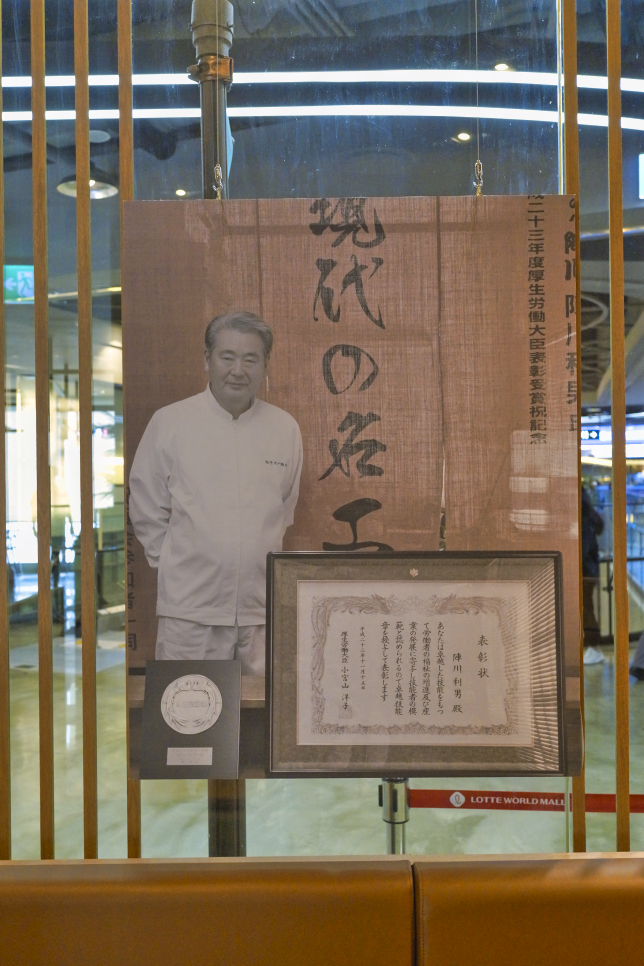 現代の名工
二十三年度厚生労働大臣表彰受賞祝記念
表彰状
陣川利男殿
あなたは卓越した技能をもつ
て労働者の福祉の増進及び産
業の発展に寄与し技能者の模
範と認められるので卓越技能
章を授与して表彰します
平成二十三年十一月十五日
厚生労働大臣 小宮山洋子
LOTTE WORLD MALL